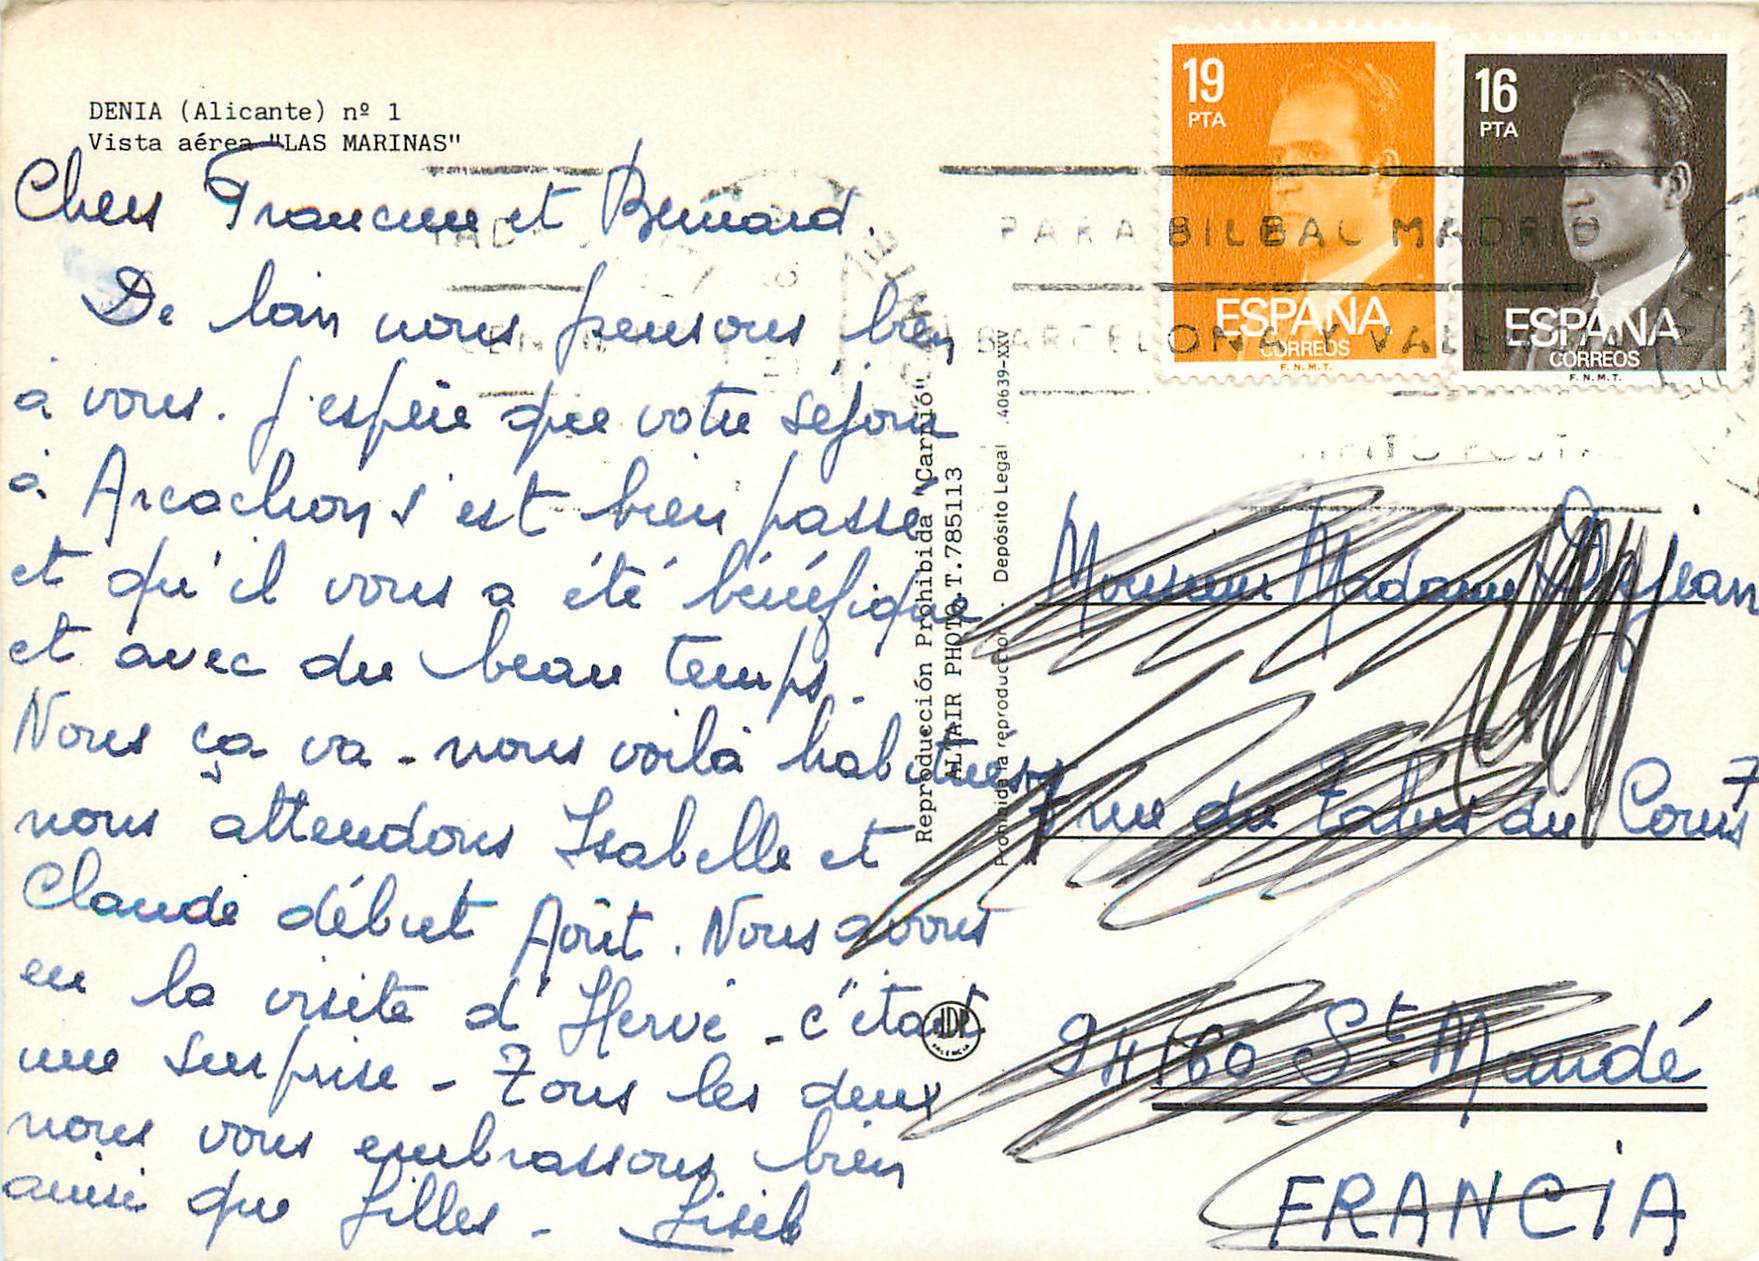 DENIA (Alicante) nº 1
Vista aérea "LAS MARINAS"
Chers Francine et Bernard.
De loin nous pensons bien
à vous. J'espère que votre séjour
à Arcachon s'est bien passé
et qu'il vous a été bénéfique
et avec du beau temps.
Nous ça va - nous voilà habitués
nous attendons Isabelle et
Claude début Août. Nous avons
eu la visite d'Hervé - c'était
une surprise - Tous les deux
nous vous embrassons bien
ainsi que Gilles -
Reproducción Prohibida "Carrió"
ALTAIR PHOTO.T.785113
Prohibida la reproducción. Depósito Legal 40639-XXV
VALENCIA
19
PTA
ESPAÑA
CORREOS
F.N.M.T.
16
PTA
ESPAÑA
CORREOS
F.N.M.T.
PARA BILBAO MADRID
BARCELONA Y VALENCIA
Monsieur Madame Dejean
7 rue du Talus du Cours
94160 St Mandé
FRANCIA